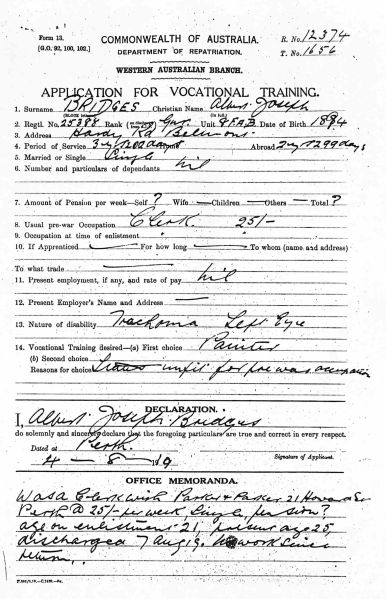 Form 13.
[G.O. 92, 100, 102.]
COMMONWEALTH OF AUSTRALIA.
DEPARTMENT OF REPATRIATION.
R. No. 12374
T. No. 1656
WESTERN AUSTRALIAN BRANCH.
APPLICATION FOR VOCATIONAL TRAINING.
1. Surname BRIDGES Christian Name Albert Joseph
2. Regtl. No. 25388 Rank Gnr. Unit 9 F.A.B. Date of Birth 1894
3. Address Hardy Rd Belmont
4. Period of Service 3 yrs 202 days Abroad 2 yrs 299 days
5. Married or Single Single
6. Number and particulars of dependants nil
7. Amount of Pension per week—Self ? Wife — Children — Others — Total ?
8. Usual pre-war Occupation Clerk 25/-
9. Occupation at time of enlistment
10. If Apprenticed — For how long — To whom (name and address)
To what trade —
11. Present employment, if any, and rate of pay nil
12. Present Employer's Name and Address —
13. Nature of disability Trachoma Left Eye
14. Vocational Training desired—(a) First choice Painter
(b) Second choice
Reasons for choice States unfit for pre war occupation
DECLARATION.
I, Albert Joseph Bridges
do solemnly and sincerely declare that the foregoing particulars are true and correct in every respect.
Dated at Perth
4 - 8 - 19
Signature of Applicant.
OFFICE MEMORANDA.
Was a Clerk with Parker & Parker 21 Howard St
Perth @ 25/- per week, Single, pension?
age on enlistment 21, present age 25,
discharged 7 Aug 19. No work since
return.